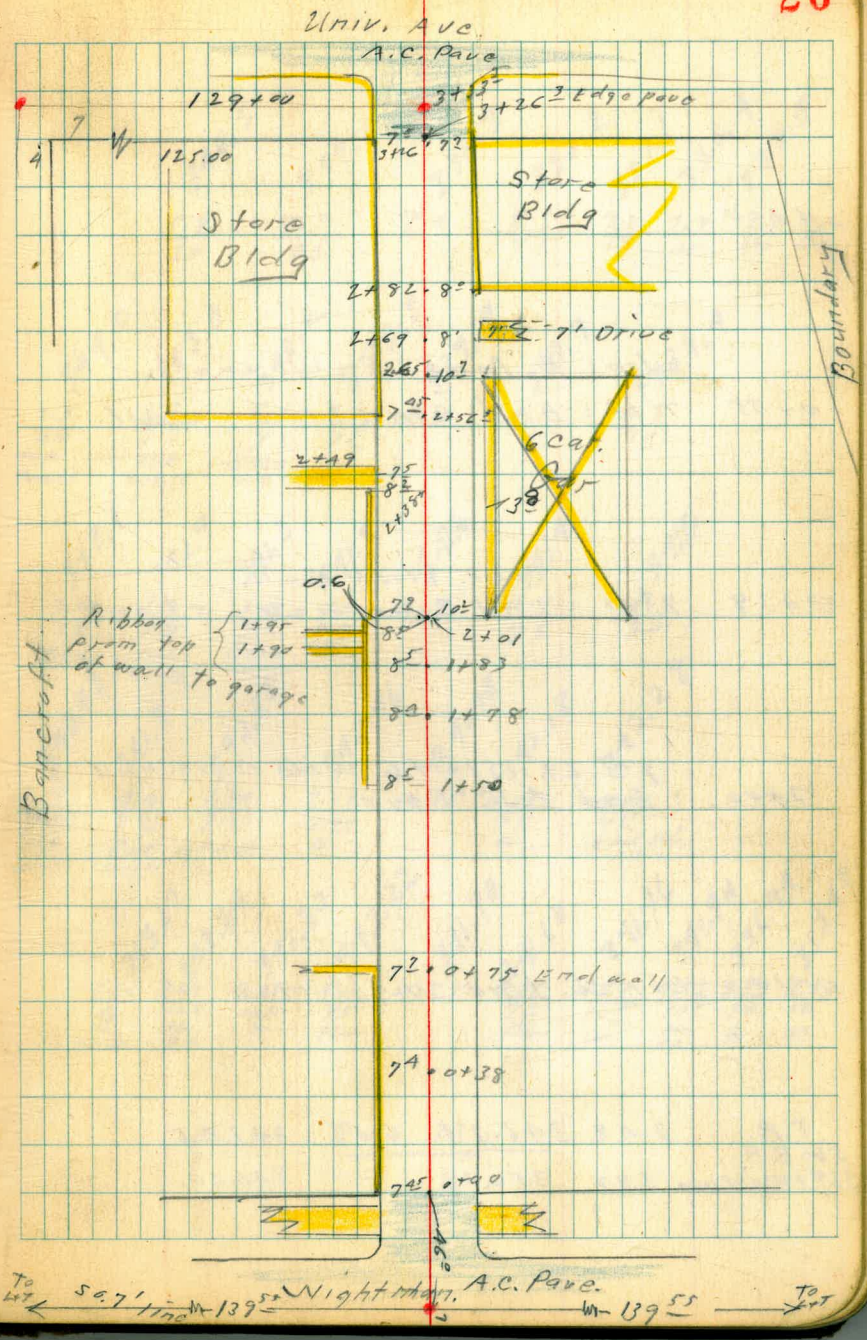 20
Univ. Ave
A.C. Pave
129+00
3+26³ Edge pave
7
4
125.00
3+26 . 7²
Store
Bldg
Store
Bldg
Boundary
2+82 . 8⁰
2+69 . 8'
7' Drive
265 . 10⁷
7⁴⁵ . 2+56²
6 Car.
Gar
13⁸
2+49
7⁵
8²
0.6
7² 10²
2+01
Ribbon
from top
of wall to garage
1+95
1+90
8⁵ 1+83
1+78
8⁵ 1+50
Bancroft
7² . 0+75 End wall
7⁴ . 0+38
7⁴⁵ 0+00
16⁰
Wightman. A.C. Pave.
To L+T
50.7' line
139⁵⁵
139⁵⁵
To L+T